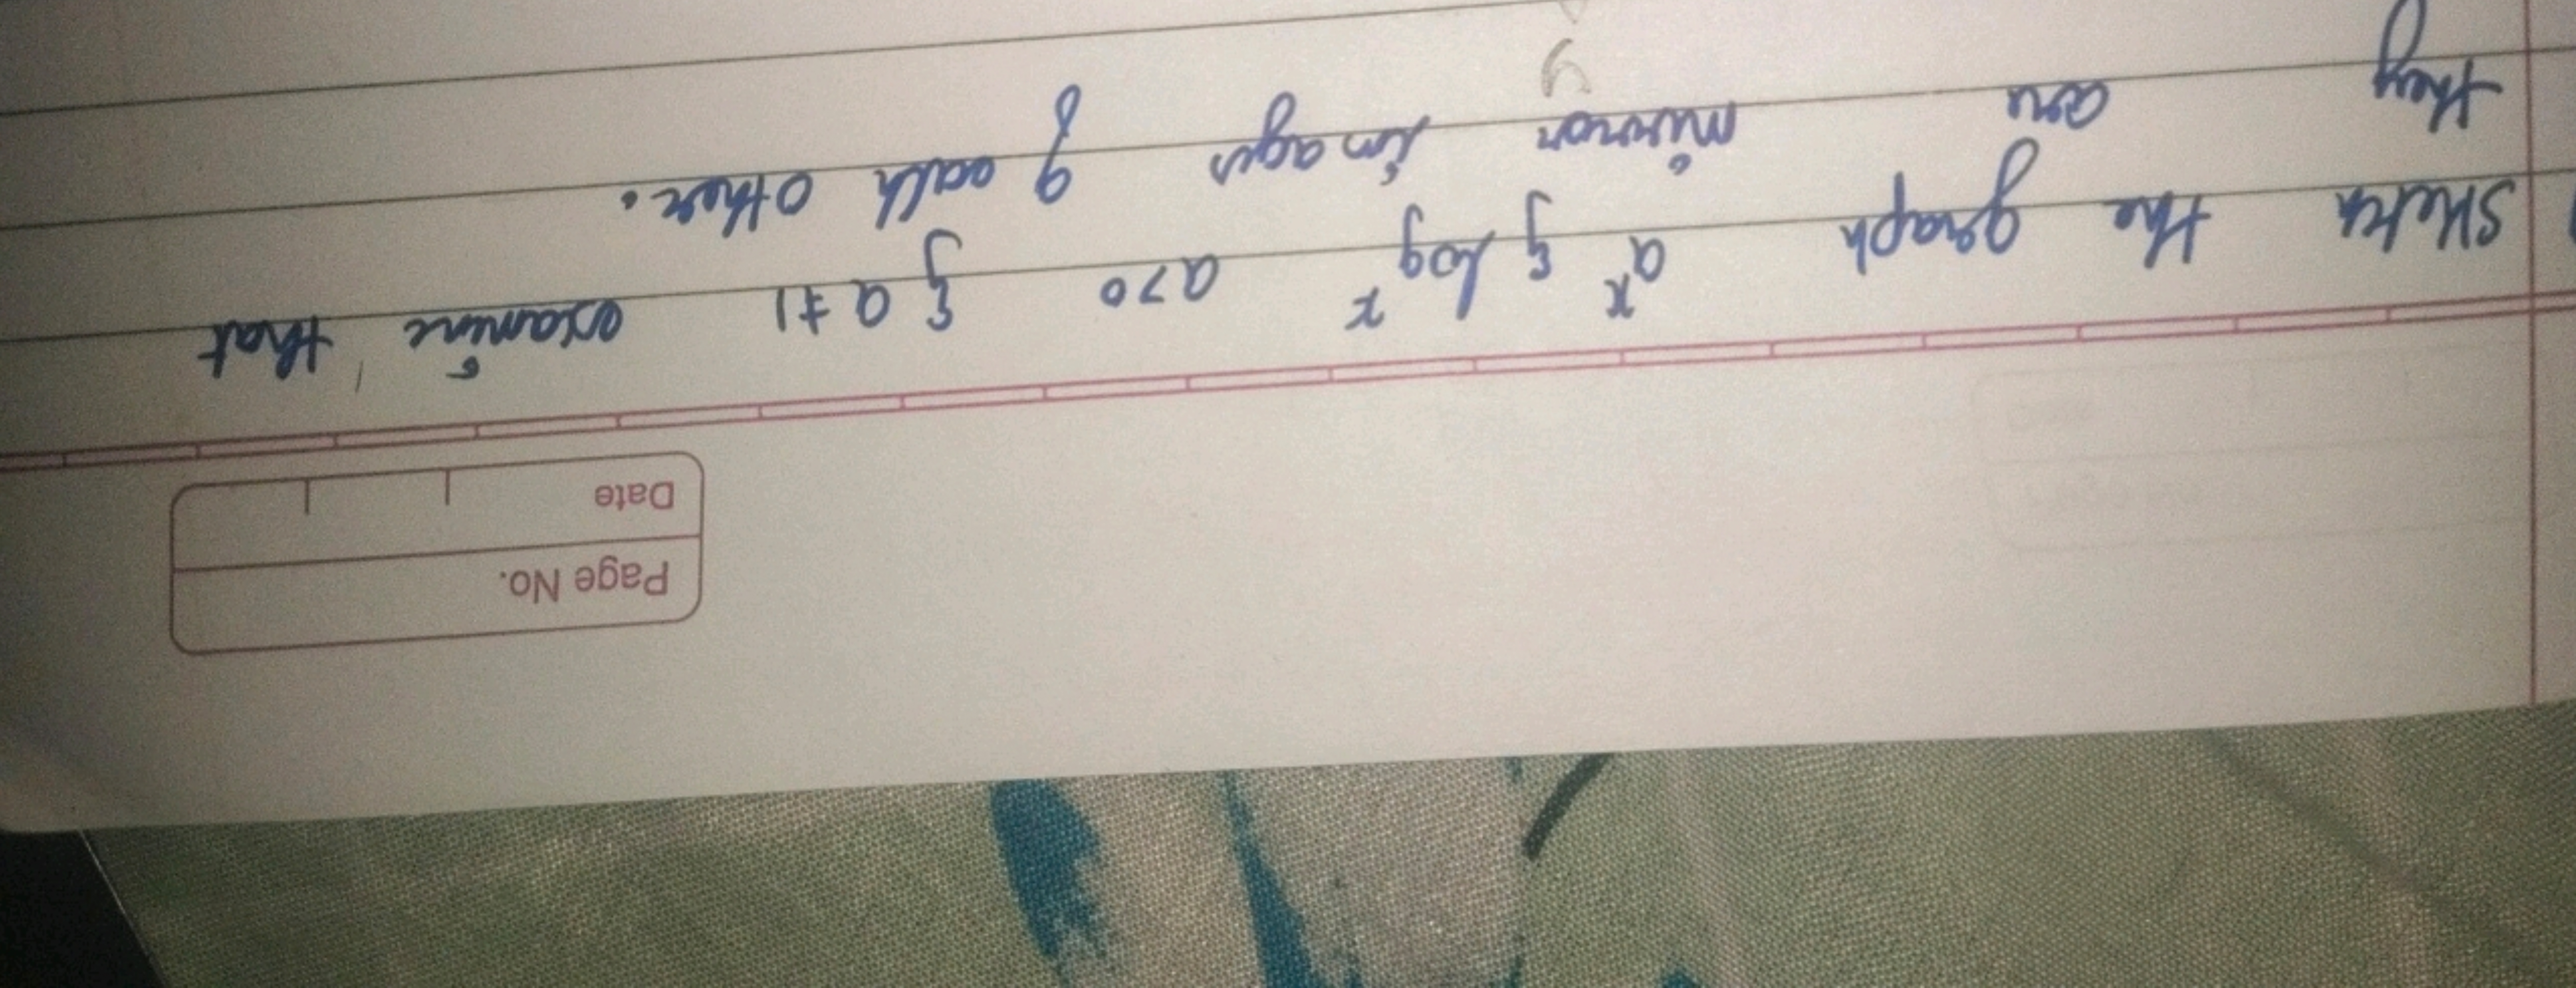 Page No.
Date
Sketch the graph a^x & log x a>0 & a ≠ 1 examine that
they are mirror images of each other.
y